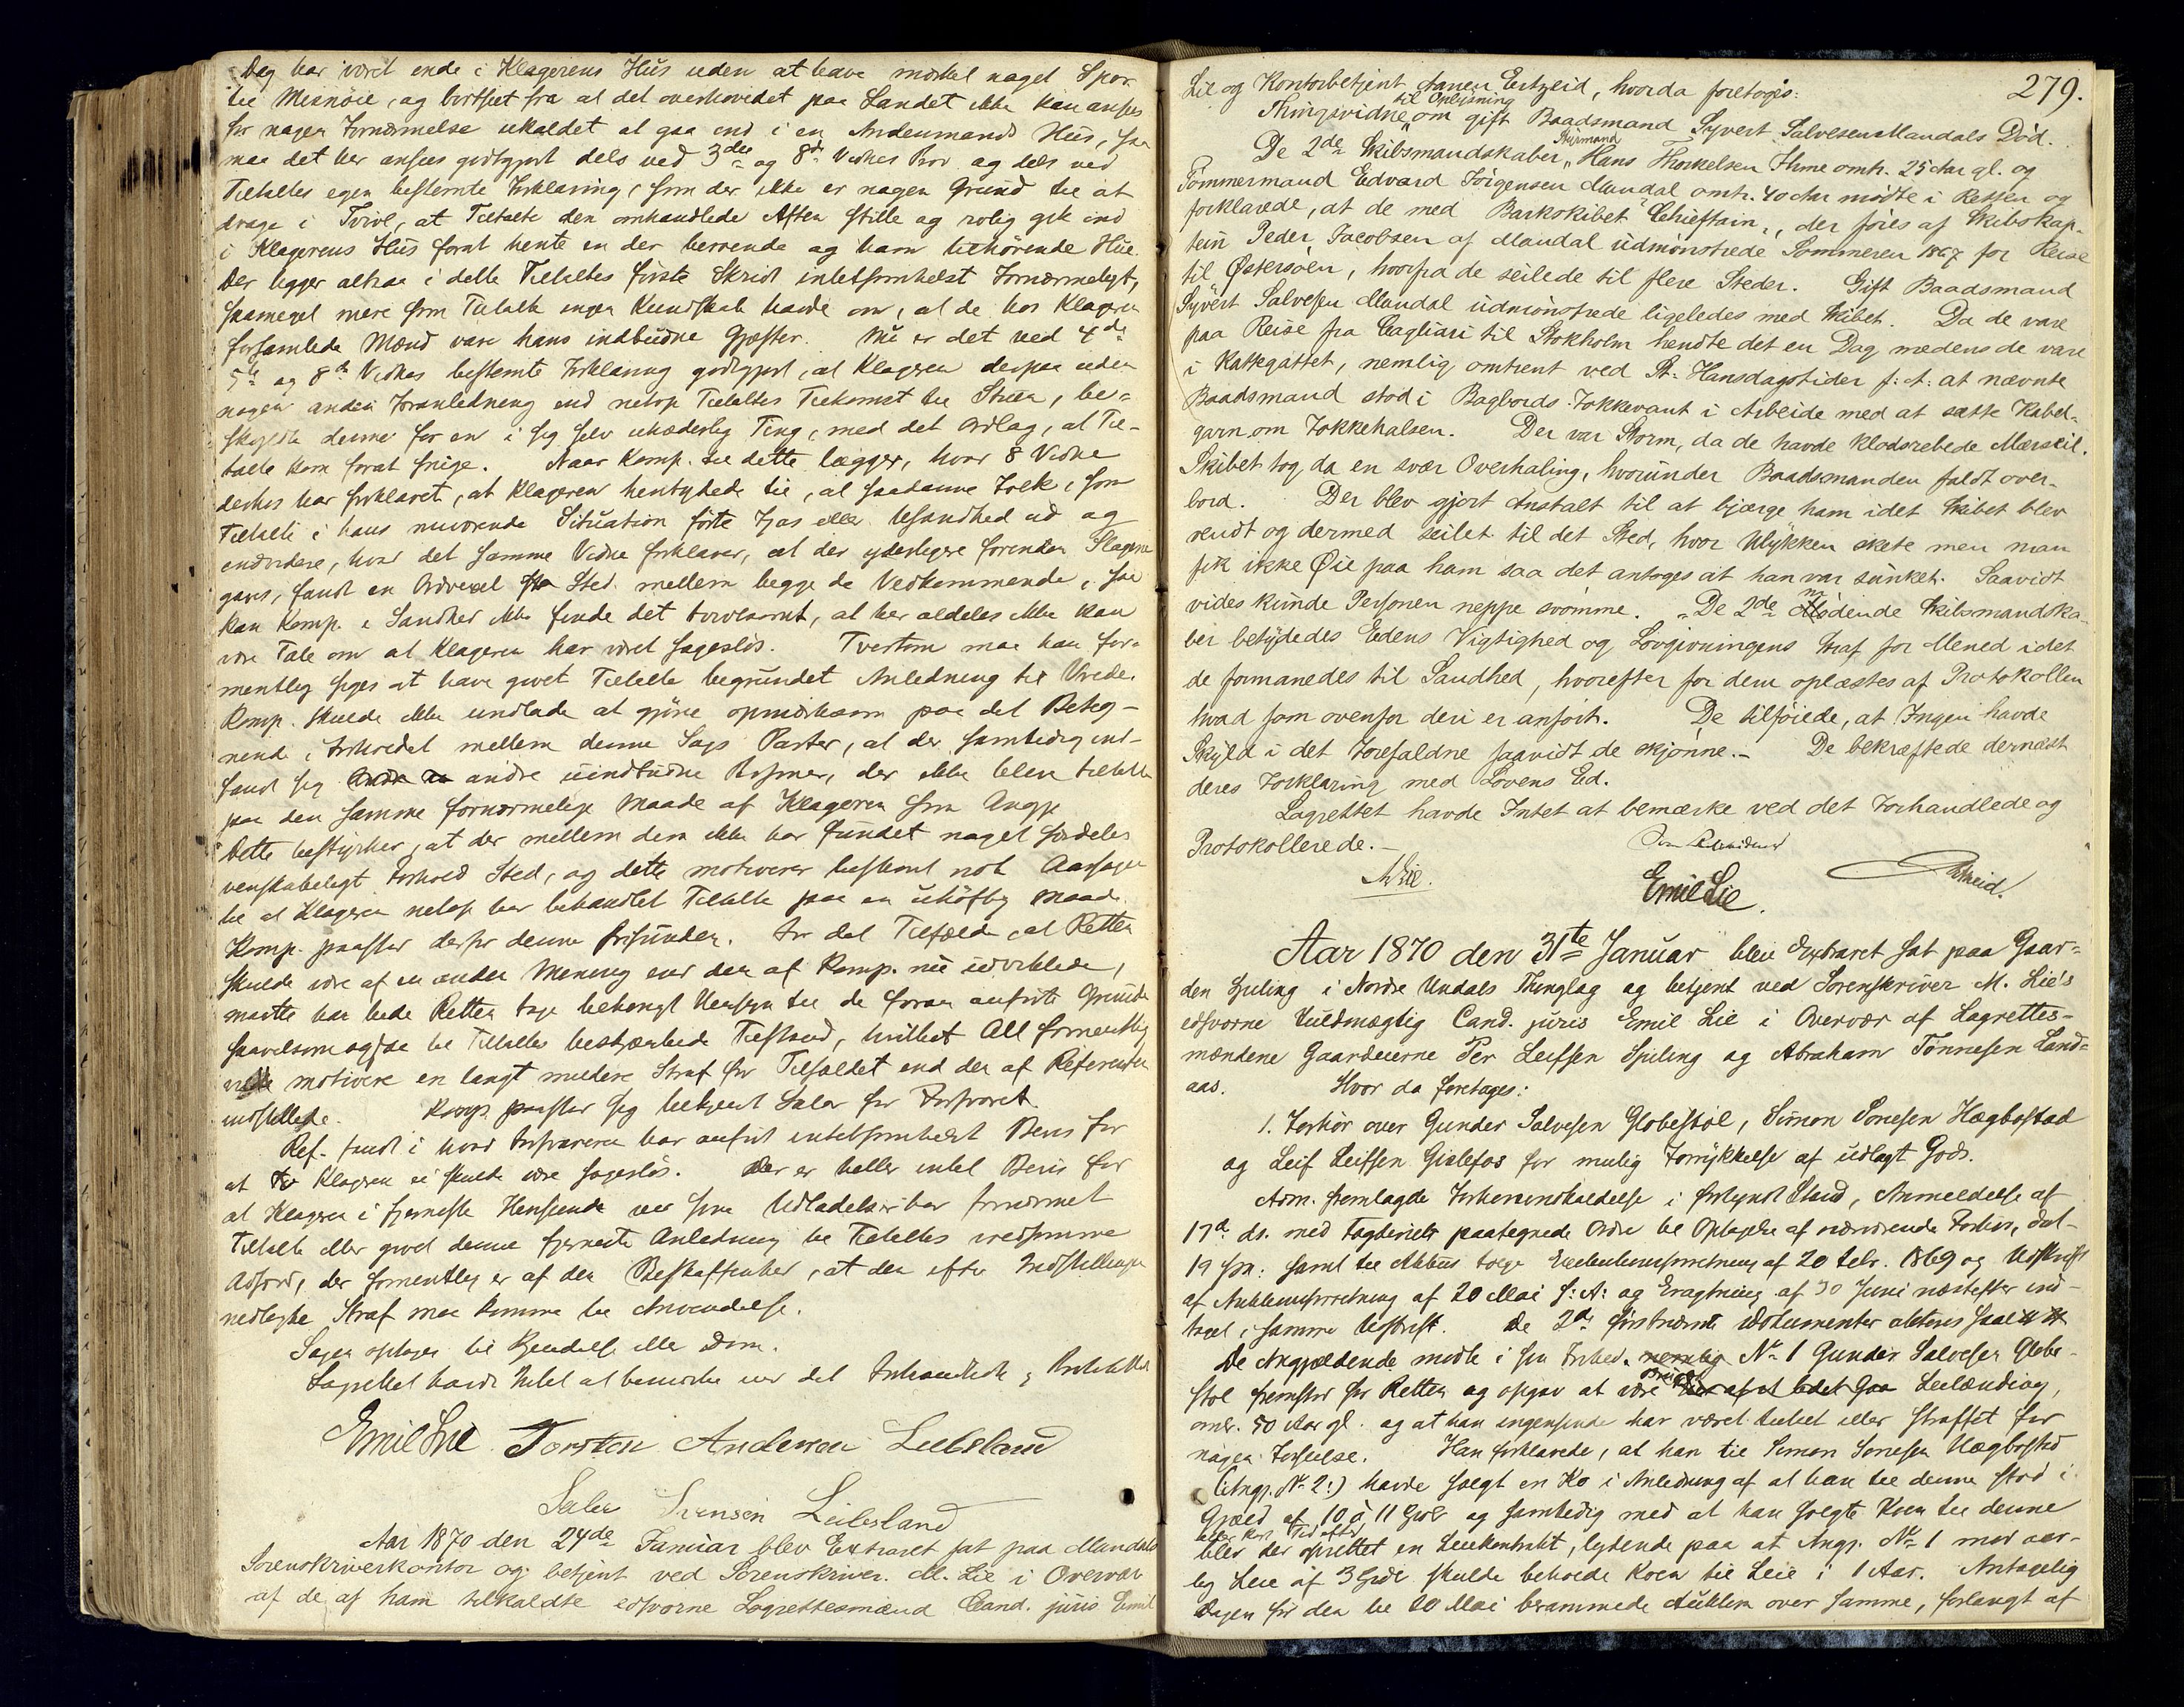 Dag har været ende i Klagerens Hus uden at have mærket noget Spor
til Misnøie, og bortseet fra at det overhovedet paa Landet ikke kan ansees
for nogen Fornærmelse ukaldet at gaa ind i en Andenmands Hus, saa
maa det her ansees godtgjort dels ved 3die og 8de Vidnes Prov og dels ved
Tiltaltes egen bestemte Forklaring, som der ikke er nogen Grund til at
drage i Tvivl, at Tiltalte den omhandlede Aften stille og rolig gik ind
i Klagerens Hus forat hente en der beroende og ham tilhørende Hue.
Der ligger altsaa i dette Tiltaltes første Skridt intetsomhelst Fornærmeligt,
saameget mere som Tiltalte ingen Kundskab havde om, at de hos Klageren
forsamlede Mænd vare hans indbudne Gjæster. Nu er det ved 4de
5te og 8de Vidnes bestemte Forklaring godtgjort, at Klageren derpaa uden
nogen anden Foranledning end netop Tiltaltes Tilkomst til Stuen, be-
skyldte denne for en i sig selv uhæderlig Ting, med det Ordlag, at Til-
talte kom forat snige. Naar Komp. til dette lægger, hvad 8 Vidne
derhos har forklaret, at Klageren hentydede til, at saadanne Folk, som
Tiltalte i hans nuværende Situation førte Fjas eller Usandhed ud og
endvidere, hvad det samme Vidne forklarer, at der yderligere forinden Slagene
gaves, fandt en Ordvexel Sted mellem begge de Vedkommende, saa
kan Komp. i Sandhed ikke finde det tvivlsomt, at her aldeles ikke kan
være Tale om at Klageren har været sagesløs. Tvertom maa han for-
mentlig siges at have givet Tiltalte begrundet Anledning til Vrede.
Komp. skulde ikke undlade at gjøre opmærksom paa det Beteg-
nende i Forholdet mellem denne Sags Parter, at der samtidig ind-
fandt sig andre uindbudne Personer, der ikke blev tiltalt
paa den samme fornærmelige Maade af Klageren som Angje
Dette bestyrker, at der mellem dem ikke har fundet noget særdeles
venskabeligt Forhold Sted, og dette motiverer bestemt nok Aarsagen
til at Klageren netop har behandlet Tiltalte paa en uhøflig Maade.
Komp. paastaar derfor denne frifunden. For det Tilfælde, at Retten
skulde være af en anden Mening end den af Komp. nu udviklede,
maatte han bede Retten tage behørigt Hensyn til de foran anførte Grunde
saavelsom ogsaa til Tiltaltes beskjænkede Tilstand, hvilket Alt formentlig
motivere en langt mildere Straf for Tilfældet end den af Referenten
indstillede. Komp. paastaar sig tilkjendt Salær for Forsvaret.
Ref. fandt i hvad Forsvareren har anført intetsomhelst Bevis for
at Klageren ei skulde være sagesløs. Der er heller intet Bevis for
at Klageren i fjerneste Henseende ved sine Udladelser har fornærmet
Tiltalte eller givet denne fjerneste Anledning til Tiltaltes voldsomme
Adfærd, der formentlig er af den Beskaffenhed, at den efter Indstillingen
nedlagte Straf maa komme til Anvendelse.
Sagen optages til Kjendelse eller Dom.
Lagrettet havde Intet at bemærke ved det Forhandlede og Protokollerede
Emil Lie Torsten Andersen Leibsland
Salve Svensen Leibsland
Aar 1870 den 24de Januar blev Extraret sat paa Mandals
Sorenskriverkontor og betjent ved Sorenskriver M. Lie i Overvær
af de af ham tilkaldte edsvorne Lagrettesmænd Cand. juris Emil
279.
Lie og Kontorbetjent Aanen Eitzeid, hvorda foretoges:
Thingsvidne til Oplysning om gift Baadsmand Syvert Salvesen Mandals Død.
De 2de Skibsmandskaber, Styrmand Hans Thorkelsen Ihme omtr. 25 Aar gl. og
Tømmermand Edvard Jørgensen Mandal omtr. 40 Aar mødte i Retten og
forklarede, at de med Barkskibet "Chieftain", der føres af Skibskap-
tein Peder Jacobsen af Mandal udmønstrede Sommeren 1867 for Reise
til Østersøen, hvorfra de seilede til flere Steder. Gift Baadsmand
Syvert Salvesen Mandal udmønstrede ligeledes med Skibet. Da de vare
paa Reise fra Cagliari til Stokholm hendte det en Dag medens de vare
i Kattegattet, nemlig omtrent ved St. Hansdagstider f: A: at nævnte
Baadsmand stod i Bagbords Fokkevant i Arbeide med at sætte Kabel-
garn om Fokkehalsen. Der var Storm, da de havde klodsrebede Mærsseil.
Skibet tog da en svær Overhaling, hvorunder Baadsmanden faldt over-
bord. Der blev gjort Anstalt til at bjærge ham idet Skibet blev
vendt og dermed seilet til det Sted, hvor Ulykken skete men man
fik ikke Øie paa ham saa det antoges at han var sunket. Saavidt
vides kunde Personen neppe svømme. De 2de mødende Skibsmandska-
ber betydedes Edens Vigtighed og Lovgivningens Straf for Mened idet
de formanedes til Sandhed, hvorefter for dem oplæstes af Protokollen
hvad som ovenfor deri er anført. De tilføiede, at Ingen havde
Skyld i det Forefaldne saavidt de skjønne. De bekræftede dernæst
deres Forklaring med Lovens Ed.
Lagrettet havde Intet at bemærke ved det Forhandlede og
Protokollerede.
M Lie. Emil Lie.
Aar 1870 den 31te Januar blev Extraret sat paa Gaar-
den Spiling i Nordre Undals Thinglag og betjent ved Sorenskriver M. Lie's
edsvorne Fuldmægtig Cand. juris Emil Lie i Overvær af Lagrettes-
mændene Gaardeierne Per Leifsen Spiling og Abraham Tønnesen Land-
aas. Hvor da foretoges:
1. Forhør over Gunder Salvesen Globestøl, Simon Sonesen Hægbostad
og Leif Leifsen Gislefos for mulig Forrykkelse af udlagt Gods.
Adm. fremlagde Forhørsindkaldelse i forkyndt Stand, Anmeldelse af
17d. ds. med Fogderiets paategnede Ordre til Optagelse af nærværende Forhør, dat-
19 s.m. samt til Afbenyttelse Executionsforretning af 20 Febr. 1869 og Udskrift
af Auktionsforretning af 20 Mai f: A: og Eragtning af 30 Juni næstefter ind-
taget i samme Udskrift. De 2de førstnævnte Dokumenter akteres
De Angjældende mødte i fri Frihed. No 1 Gunder Salvesen Globe-
støl fremstod for Retten og opgav at være Leilænding,
omtr. 50 Aar gl. og at han ingensinde har været tiltalt eller straffet for
nogen Forseelse. Han forklarede, at han til Simon Sonesen Hægbostad
(Angj. No 2:) havde solgt en Ko i Anledning af at han til denne stod i
Gjæld af 10 à 11 Spdlr og samtidig med at han solgte Koen til denne
eller kort Tid efter
blev der oprettet en Leiekontrakt, lydende paa at Angj. No 1 mod aar-
lig Leie af 3 Spdlr skulde beholde Koen til Leie i 1 Aar. Antagelig
Dagen før den til 20 Mai berammede Auktion over Samme, forlangt af